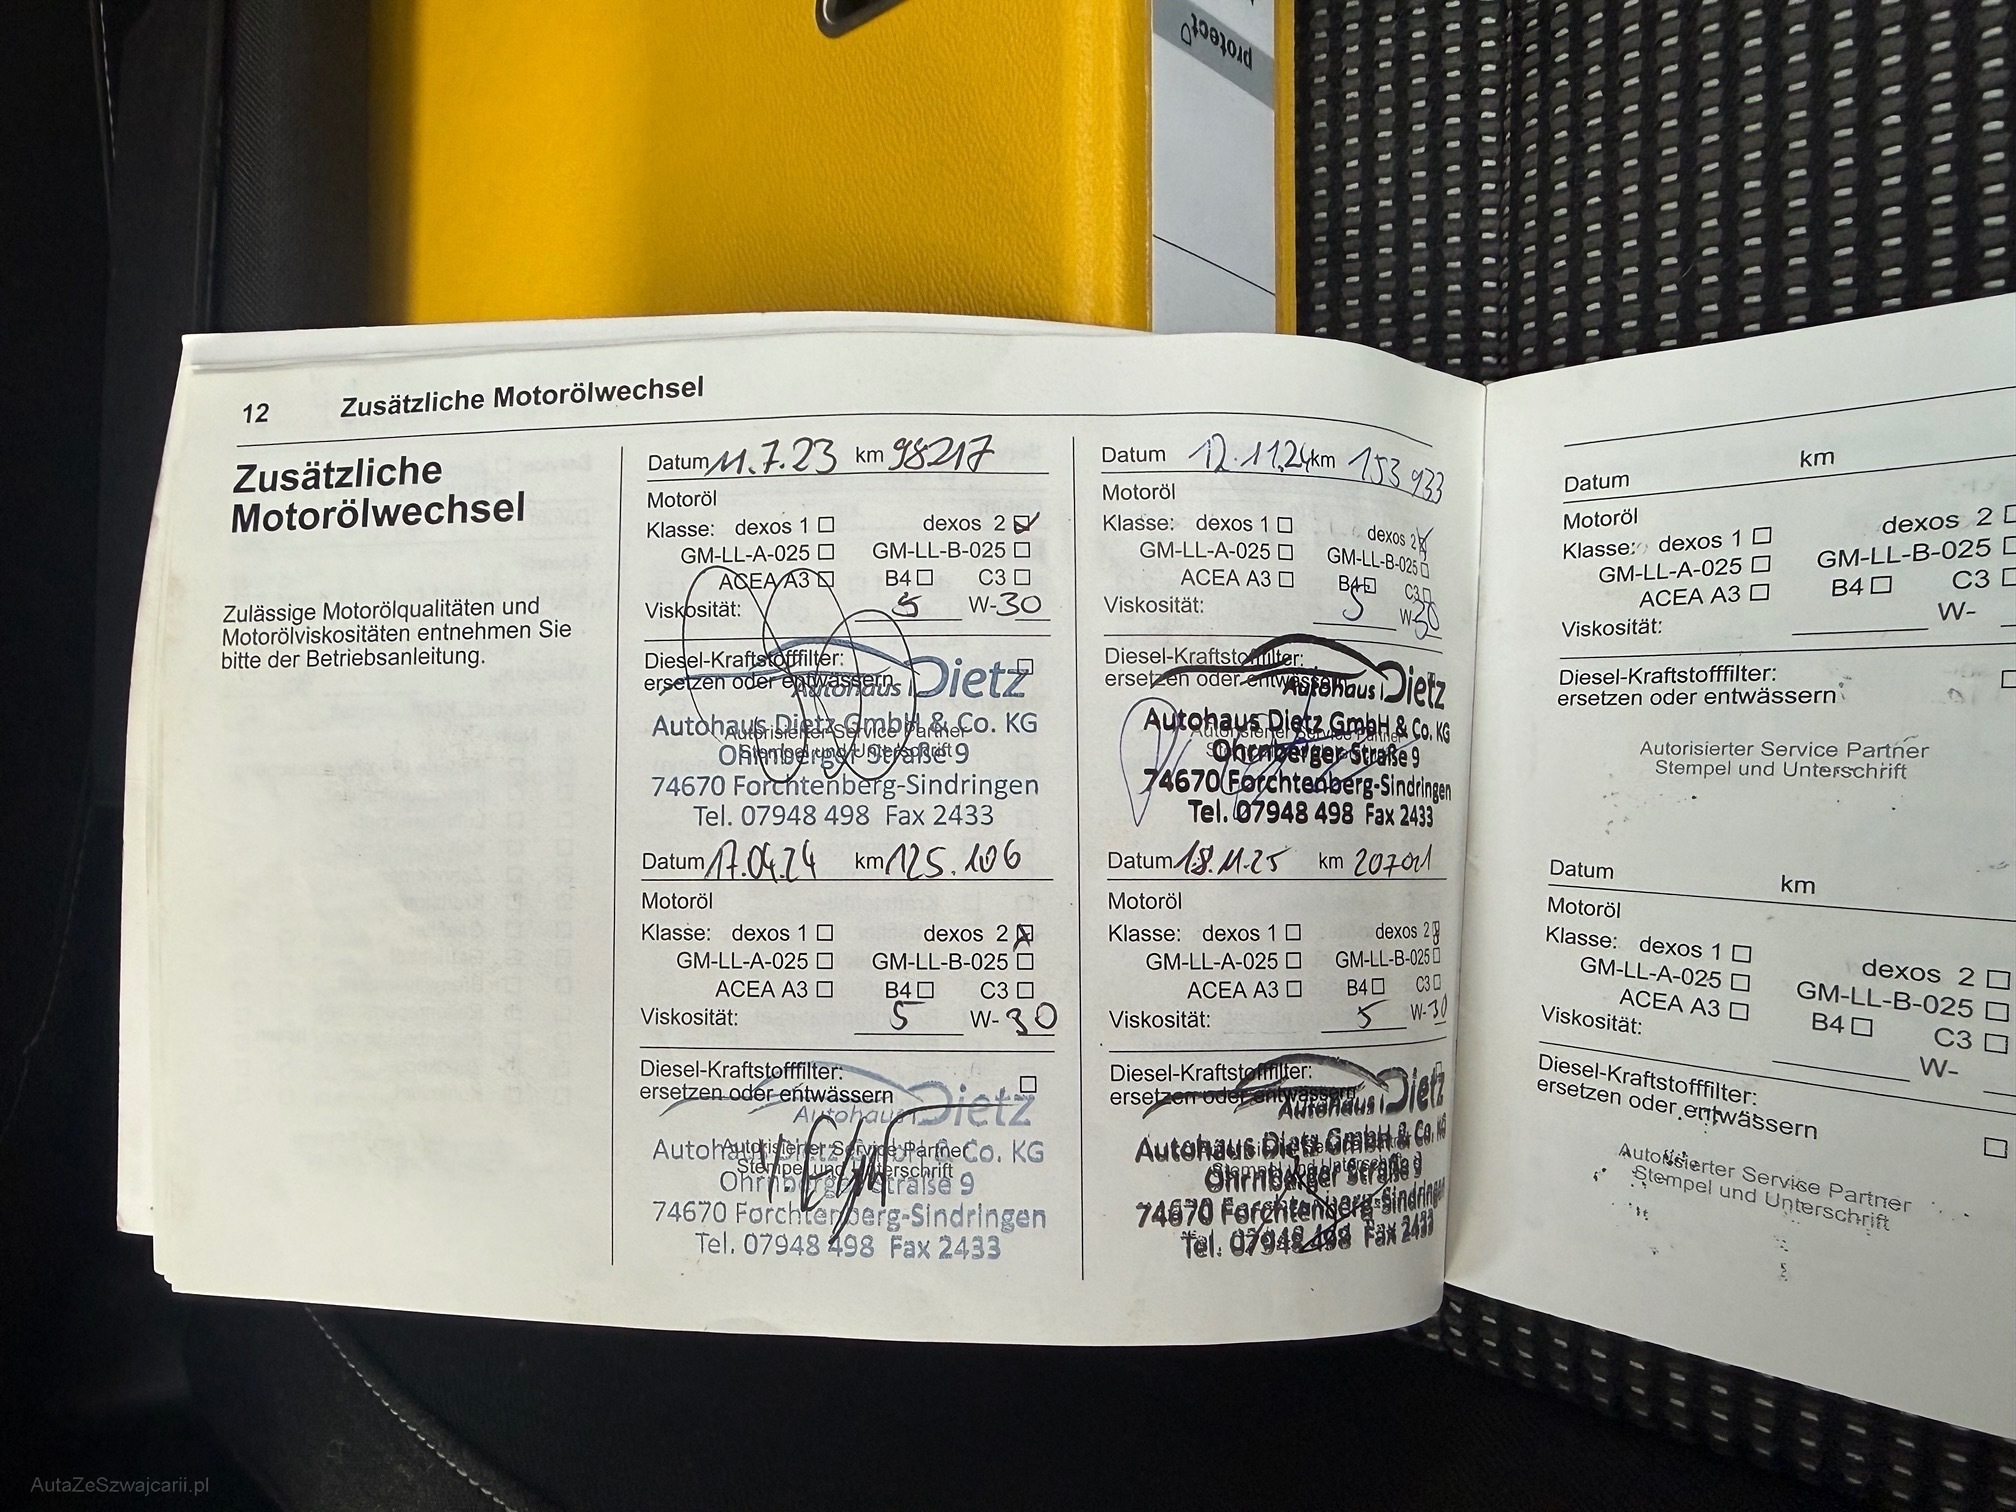 protect
12 Zusätzliche Motorölwechsel
Zusätzliche
Motorölwechsel
Zulässige Motorölqualitäten und
Motorölviskositäten entnehmen Sie
bitte der Betriebsanleitung.
Datum 11.7.23 km 98217
Motoröl
Klasse: dexos 1 dexos 2
GM-LL-A-025 GM-LL-B-025
ACEA A3 B4 C3
Viskosität: 5 W-30
Diesel-Kraftstofffilter:
ersetzen oder entwässern
Autohaus Dietz
Autohaus Dietz GmbH & Co. KG
Autorisierter Service Partner
Ohrnberger Straße 9
Stempel und Unterschrift
74670 Forchtenberg-Sindringen
Tel. 07948 498 Fax 2433
Datum 17.04.24 km 125.106
Motoröl
Klasse: dexos 1 dexos 2
GM-LL-A-025 GM-LL-B-025
ACEA A3 B4 C3
Viskosität: 5 W-30
Diesel-Kraftstofffilter:
ersetzen oder entwässern
Autohaus Dietz
Autohaus Dietz GmbH & Co. KG
Autorisierter Service Partner
Stempel und Unterschrift
Ohrnberger Straße 9
74670 Forchtenberg-Sindringen
Tel. 07948 498 Fax 2433
Datum 12.11.24 km 153 933
Motoröl
Klasse: dexos 1 dexos 2
GM-LL-A-025 GM-LL-B-025
ACEA A3 B4 C3
Viskosität: 5 W-30
Diesel-Kraftstofffilter:
ersetzen oder entwässern
Autohaus Dietz
Autohaus Dietz GmbH & Co. KG
Autorisierter Service Partner
Ohrnberger Straße 9
74670 Forchtenberg-Sindringen
Tel. 07948 498 Fax 2433
Datum 18.11.25 km 207011
Motoröl
Klasse: dexos 1 dexos 2
GM-LL-A-025 GM-LL-B-025
ACEA A3 B4 C3
Viskosität: 5 W-30
Diesel-Kraftstofffilter:
ersetzen oder entwässern
Autohaus Dietz
Autohaus Dietz GmbH & Co. KG
Stempel und Unterschrift
Ohrnberger Straße 9
74670 Forchtenberg-Sindringen
Tel. 07948 498 Fax 2433
Datum km
Motoröl
Klasse: dexos 1 dexos 2
GM-LL-A-025 GM-LL-B-025
ACEA A3 B4 C3
Viskosität: W-
Diesel-Kraftstofffilter:
ersetzen oder entwässern
Autorisierter Service Partner
Stempel und Unterschrift
Datum km
Motoröl
Klasse: dexos 1 dexos 2
GM-LL-A-025 GM-LL-B-025
ACEA A3 B4 C3
Viskosität: W-
Diesel-Kraftstofffilter:
ersetzen oder entwässern
Autorisierter Service Partner
Stempel und Unterschrift
AutaZeSzwajcarii.pl